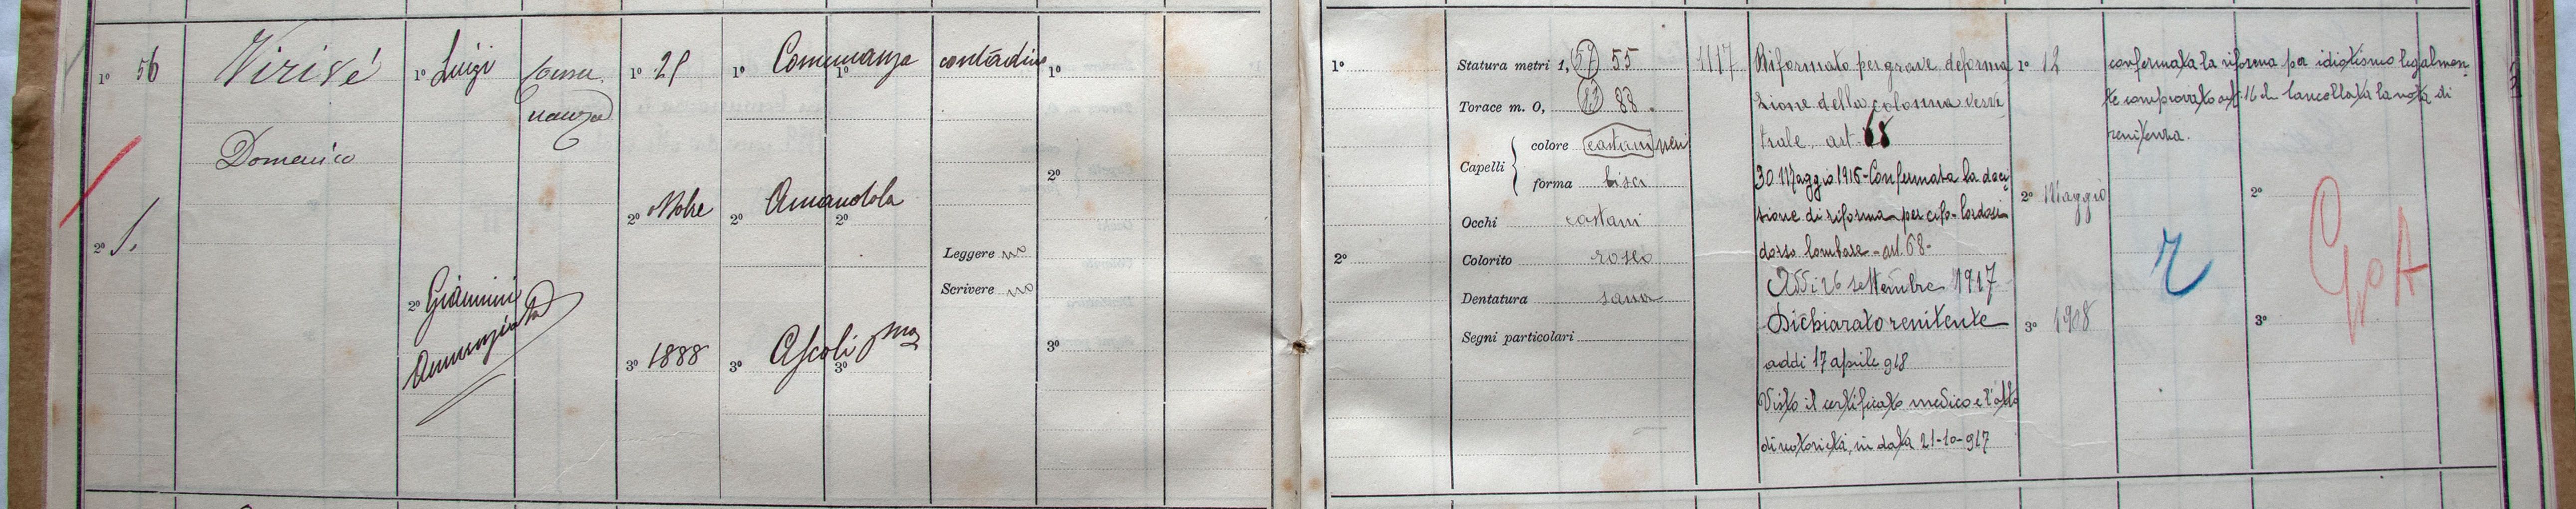 1º 56
Virisé
Domenico
2º S.
1º Luigi
Comu
nanza
2º Giannini
Annunziata
1º 25
2º 9bbre
3º 1888
1º Comunanza 1º
2º Amandola 2º
3º Ascoli 3º
contadino
Leggere no
Scrivere no
1º
2º
3º
1º
2º
Statura metri 1, 57 55
Torace m. 0, 83 88.
Capelli { colore castani neri
forma lisci
Occhi castani
Colorito roseo
Dentatura sana
Segni particolari
1117
Riformato per grave deforma
zione della colonna verte
brale, art. 68
30 Maggio 1916 - Confermata la deci
sione di riforma per cifo-lordosi
dorso lombare - art. 68 -
Addi 26 settembre 1917
Dichiarato renitente
addi 17 aprile 918
Visto il certificato medico e l'atto
di notorietà, in data 21-10-917
1º 12
2º Maggio
3º 1908
confermata la riforma per idiotismo legalmen
te comprovato art. 16 cancellata la nota di
renitenza.
R
2º
3º
G o A